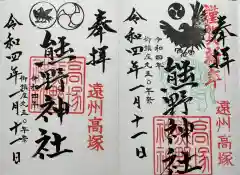 奉拝
遠州高塚
熊野神社
令和四年
令和四年一月十一日
奉拝
遠州高塚
熊野神社
令和四年
令和四年一月十一日